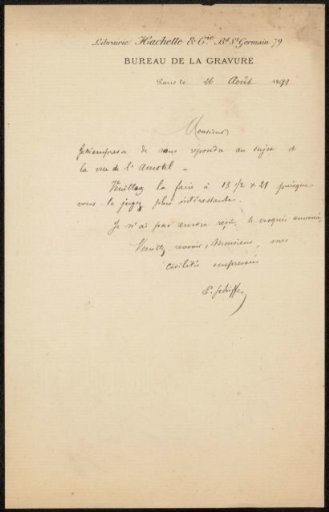 Librairie Hachette & Cie Bd St Germain, 79
BUREAU DE LA GRAVURE
Paris le 26 Août 1891
Monsieur
Je m'empresse de vous répondre au sujet de
la vue de l'
Veuillez la faire à 13 1/2 x 21 puisque
vous la jugez plus intéressante.
Je n'ai pas encore reçu le croquis annoncé
Veuillez recevoir, Monsieur, mes
civilités empressées